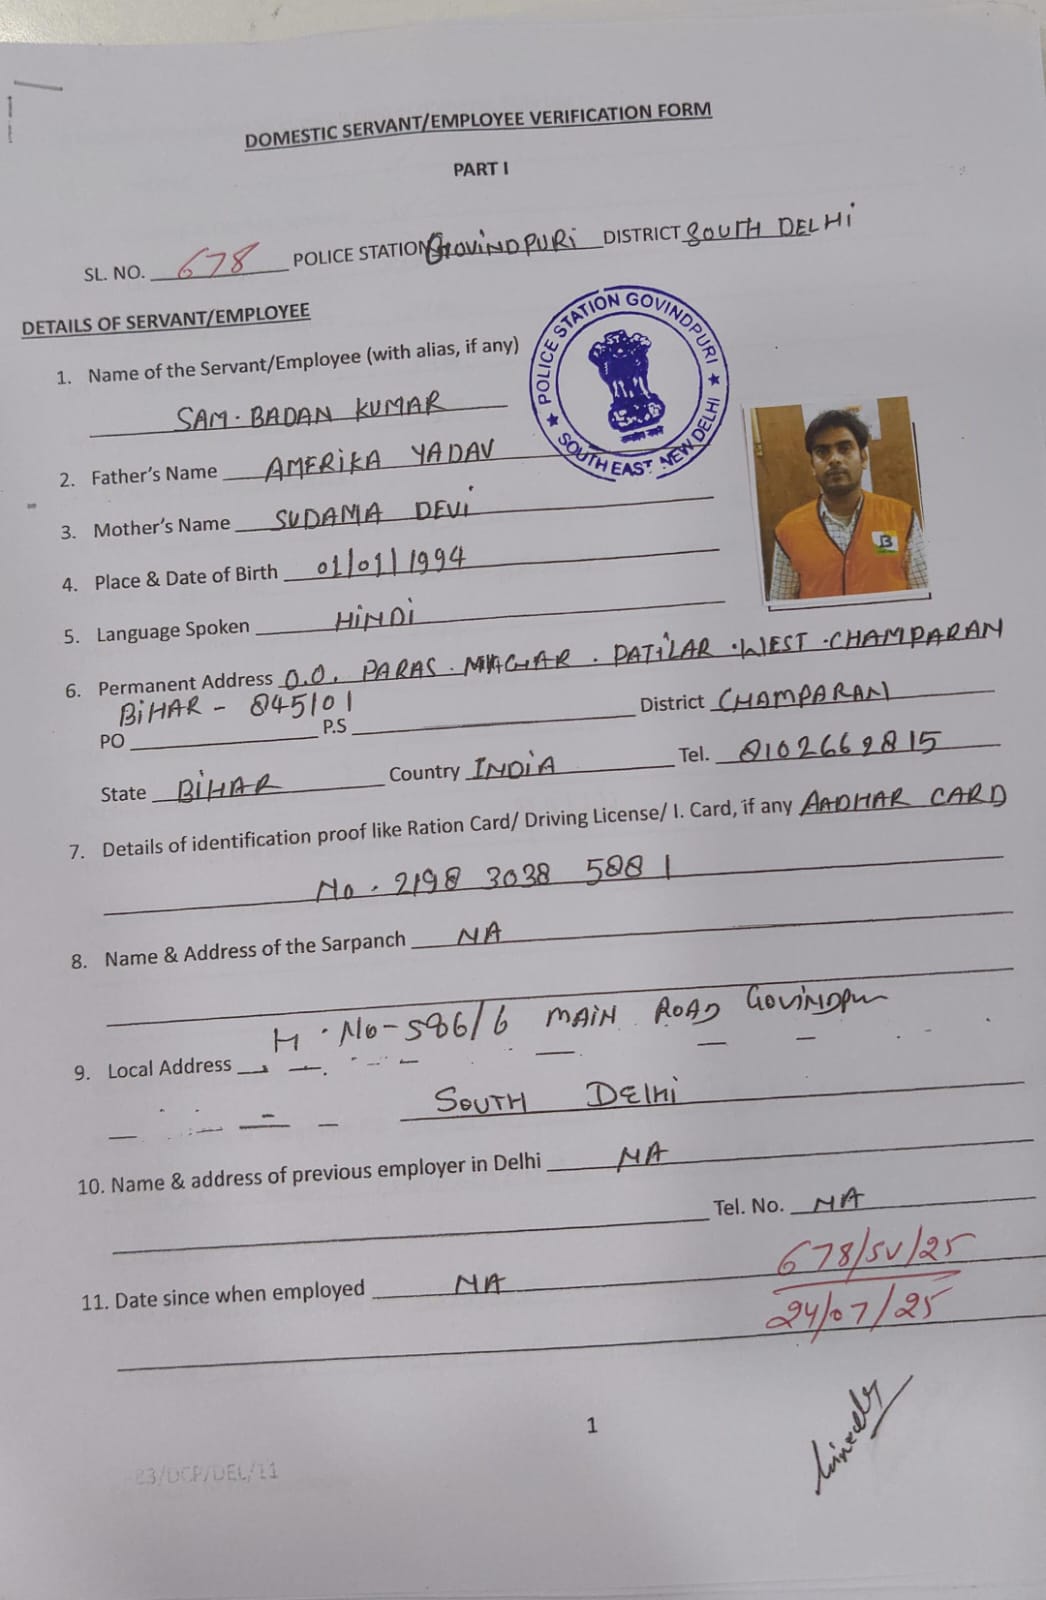 DOMESTIC SERVANT/EMPLOYEE VERIFICATION FORM
PART I
SL. NO. 678 POLICE STATION GOVINDPURI DISTRICT SOUTH DELHI
DETAILS OF SERVANT/EMPLOYEE
POLICE STATION GOVINDPURI
SOUTH EAST NEW DELHI
1. Name of the Servant/Employee (with alias, if any)
SAM. BADAN KUMAR
2. Father's Name AMERIKA YADAV
3. Mother's Name SUDAMA DEVI
4. Place & Date of Birth 01/01/1994
5. Language Spoken HINDI
6. Permanent Address O.O. PARAS. . PATILAR . WEST . CHAMPARAN
BIHAR - 845101
PO P.S District CHAMPARAN
State BIHAR Country INDIA Tel. 8102662815
7. Details of identification proof like Ration Card/ Driving License/ I. Card, if any AADHAR CARD
No. 2198 3038 5881
8. Name & Address of the Sarpanch NA
H. No-586/6 MAIN ROAD GOVINDPURI
9. Local Address
SOUTH DELHI
10. Name & address of previous employer in Delhi NA
Tel. No. NA
11. Date since when employed NA
678/SV/25
24/07/25
1
23/DCP/DEL/11